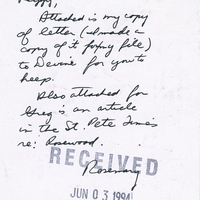 Peggy,
Attached is my copy
of letter (& made a
copy of it for my file)
to Devine for you to
keep.
Also attached for
Greg is an article
in the St. Pete Times
re: Rosewood.
RECEIVED
Rosemary
JUN 03 1994